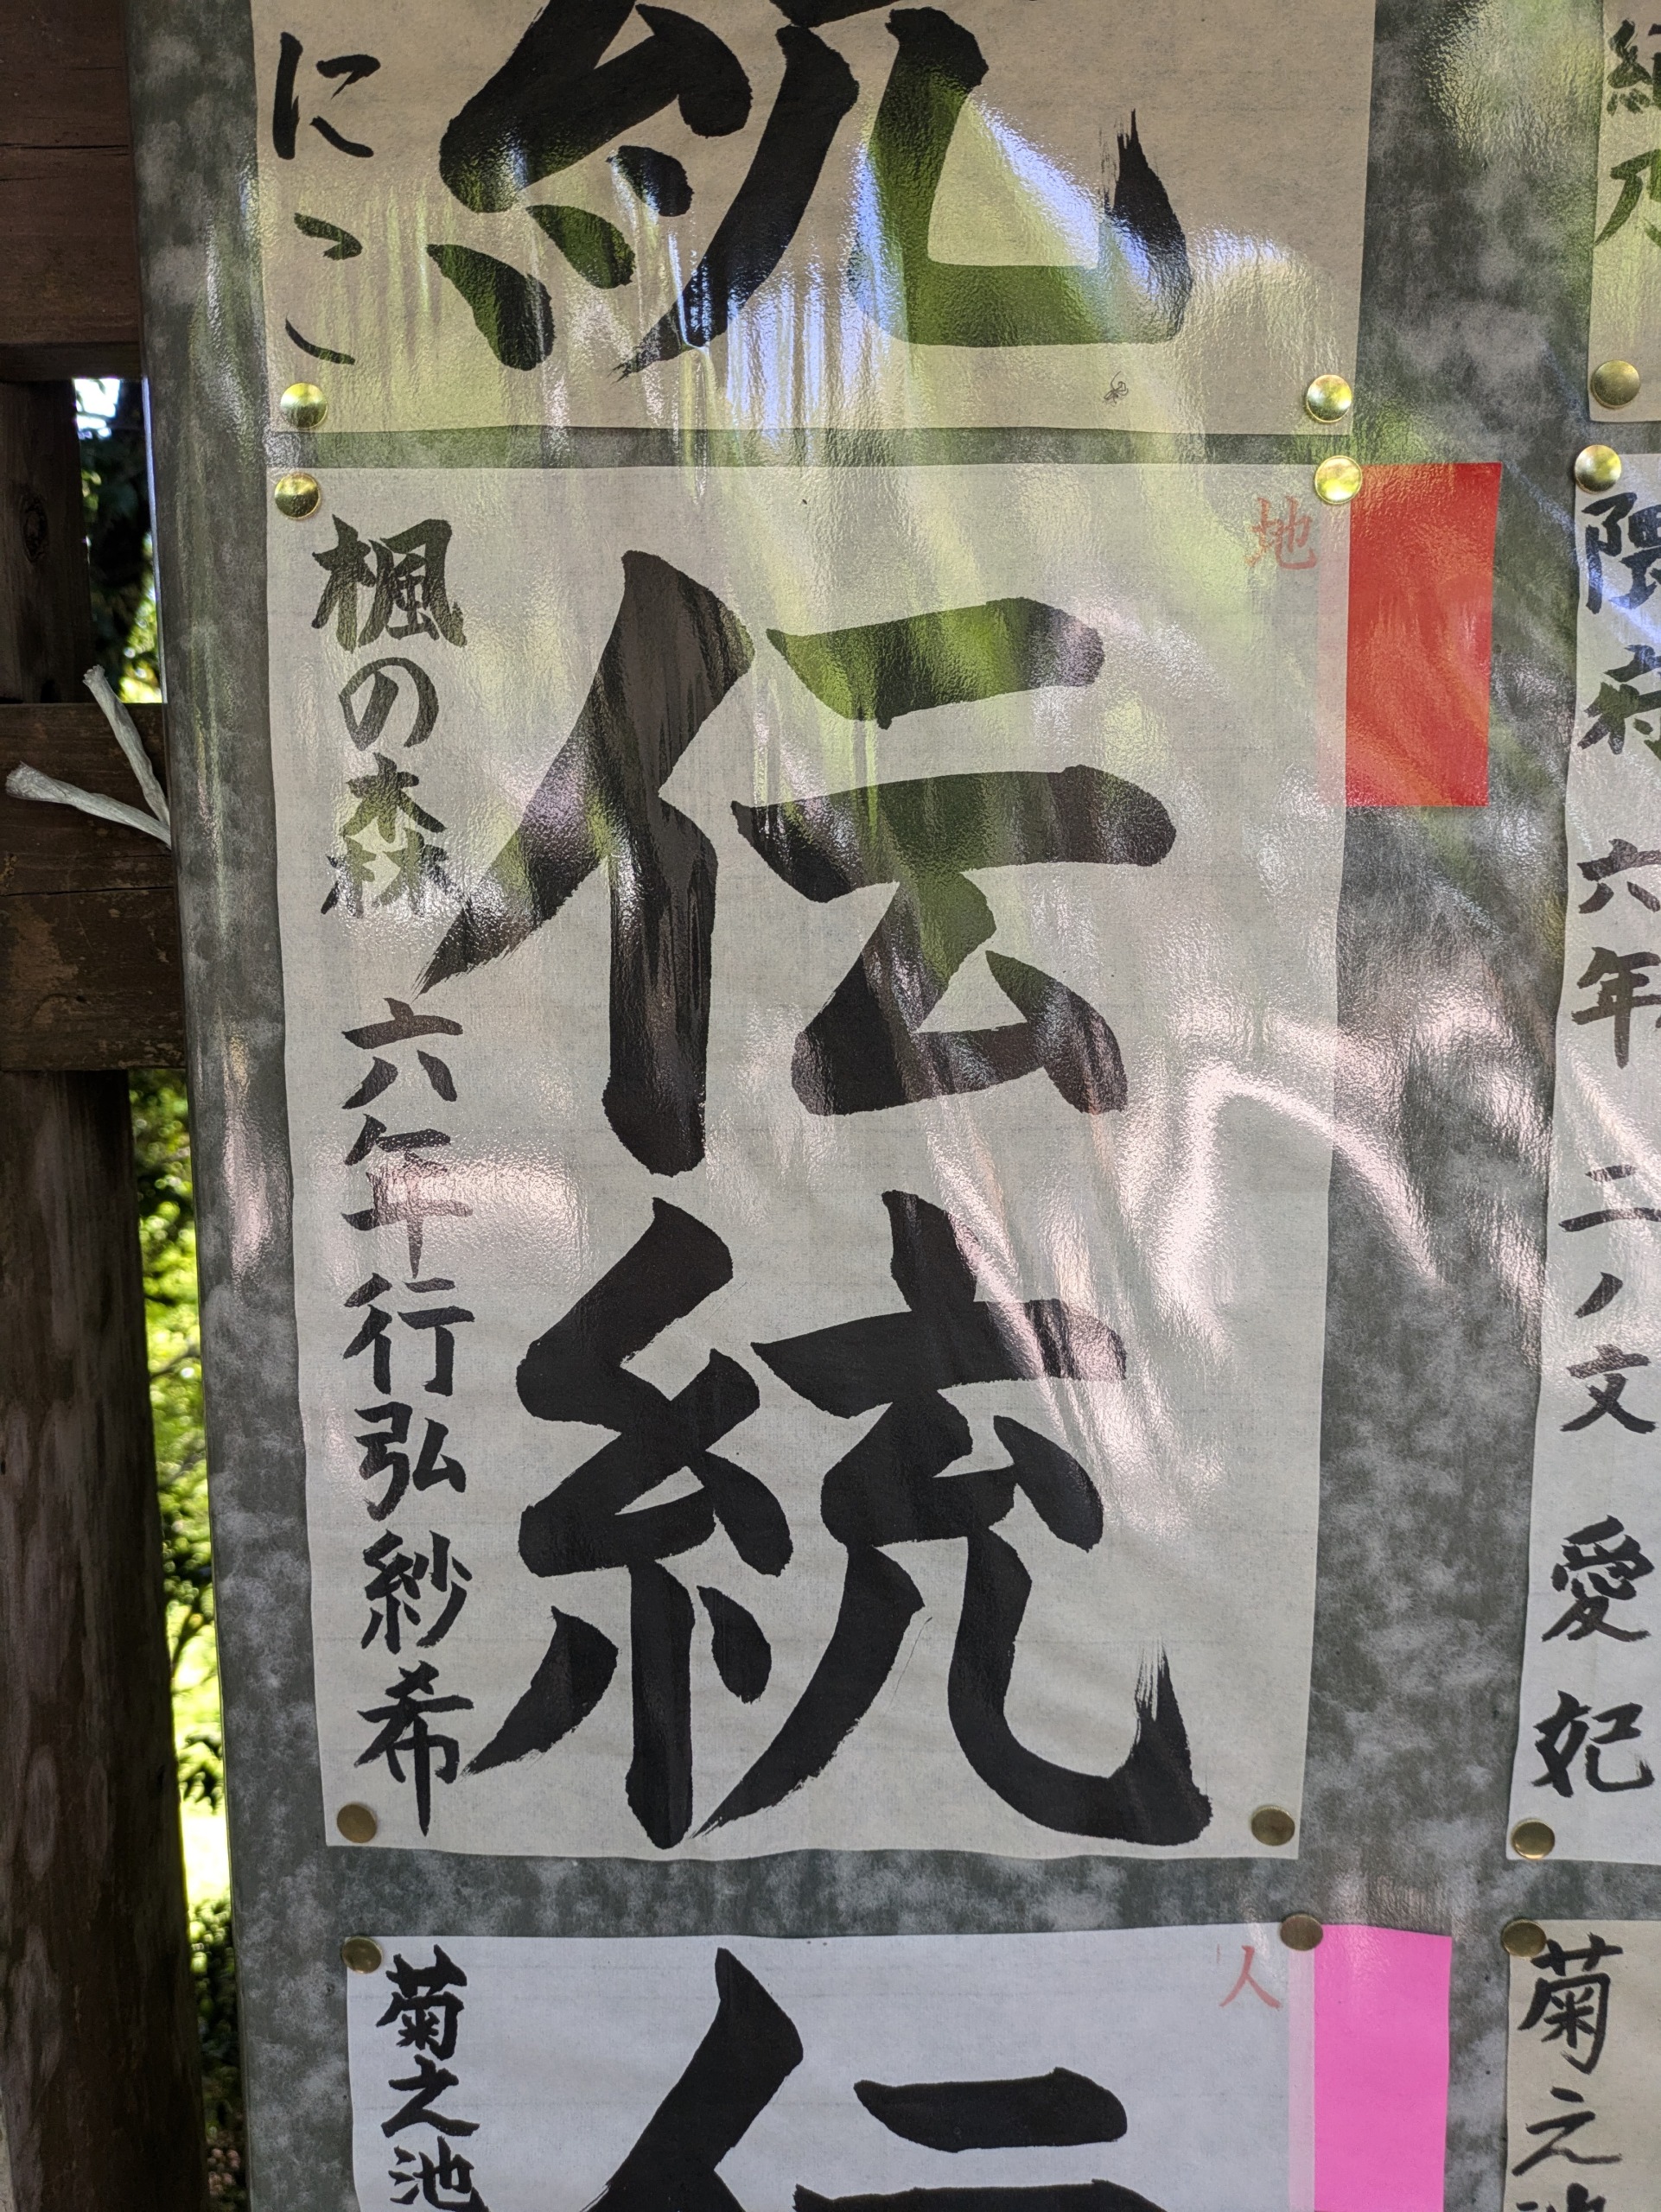 統
にこ
地
伝統
楓の森 六年 行弘紗希
隈府 六年 二ノ文 愛妃
人
伝
菊之池
菊之池